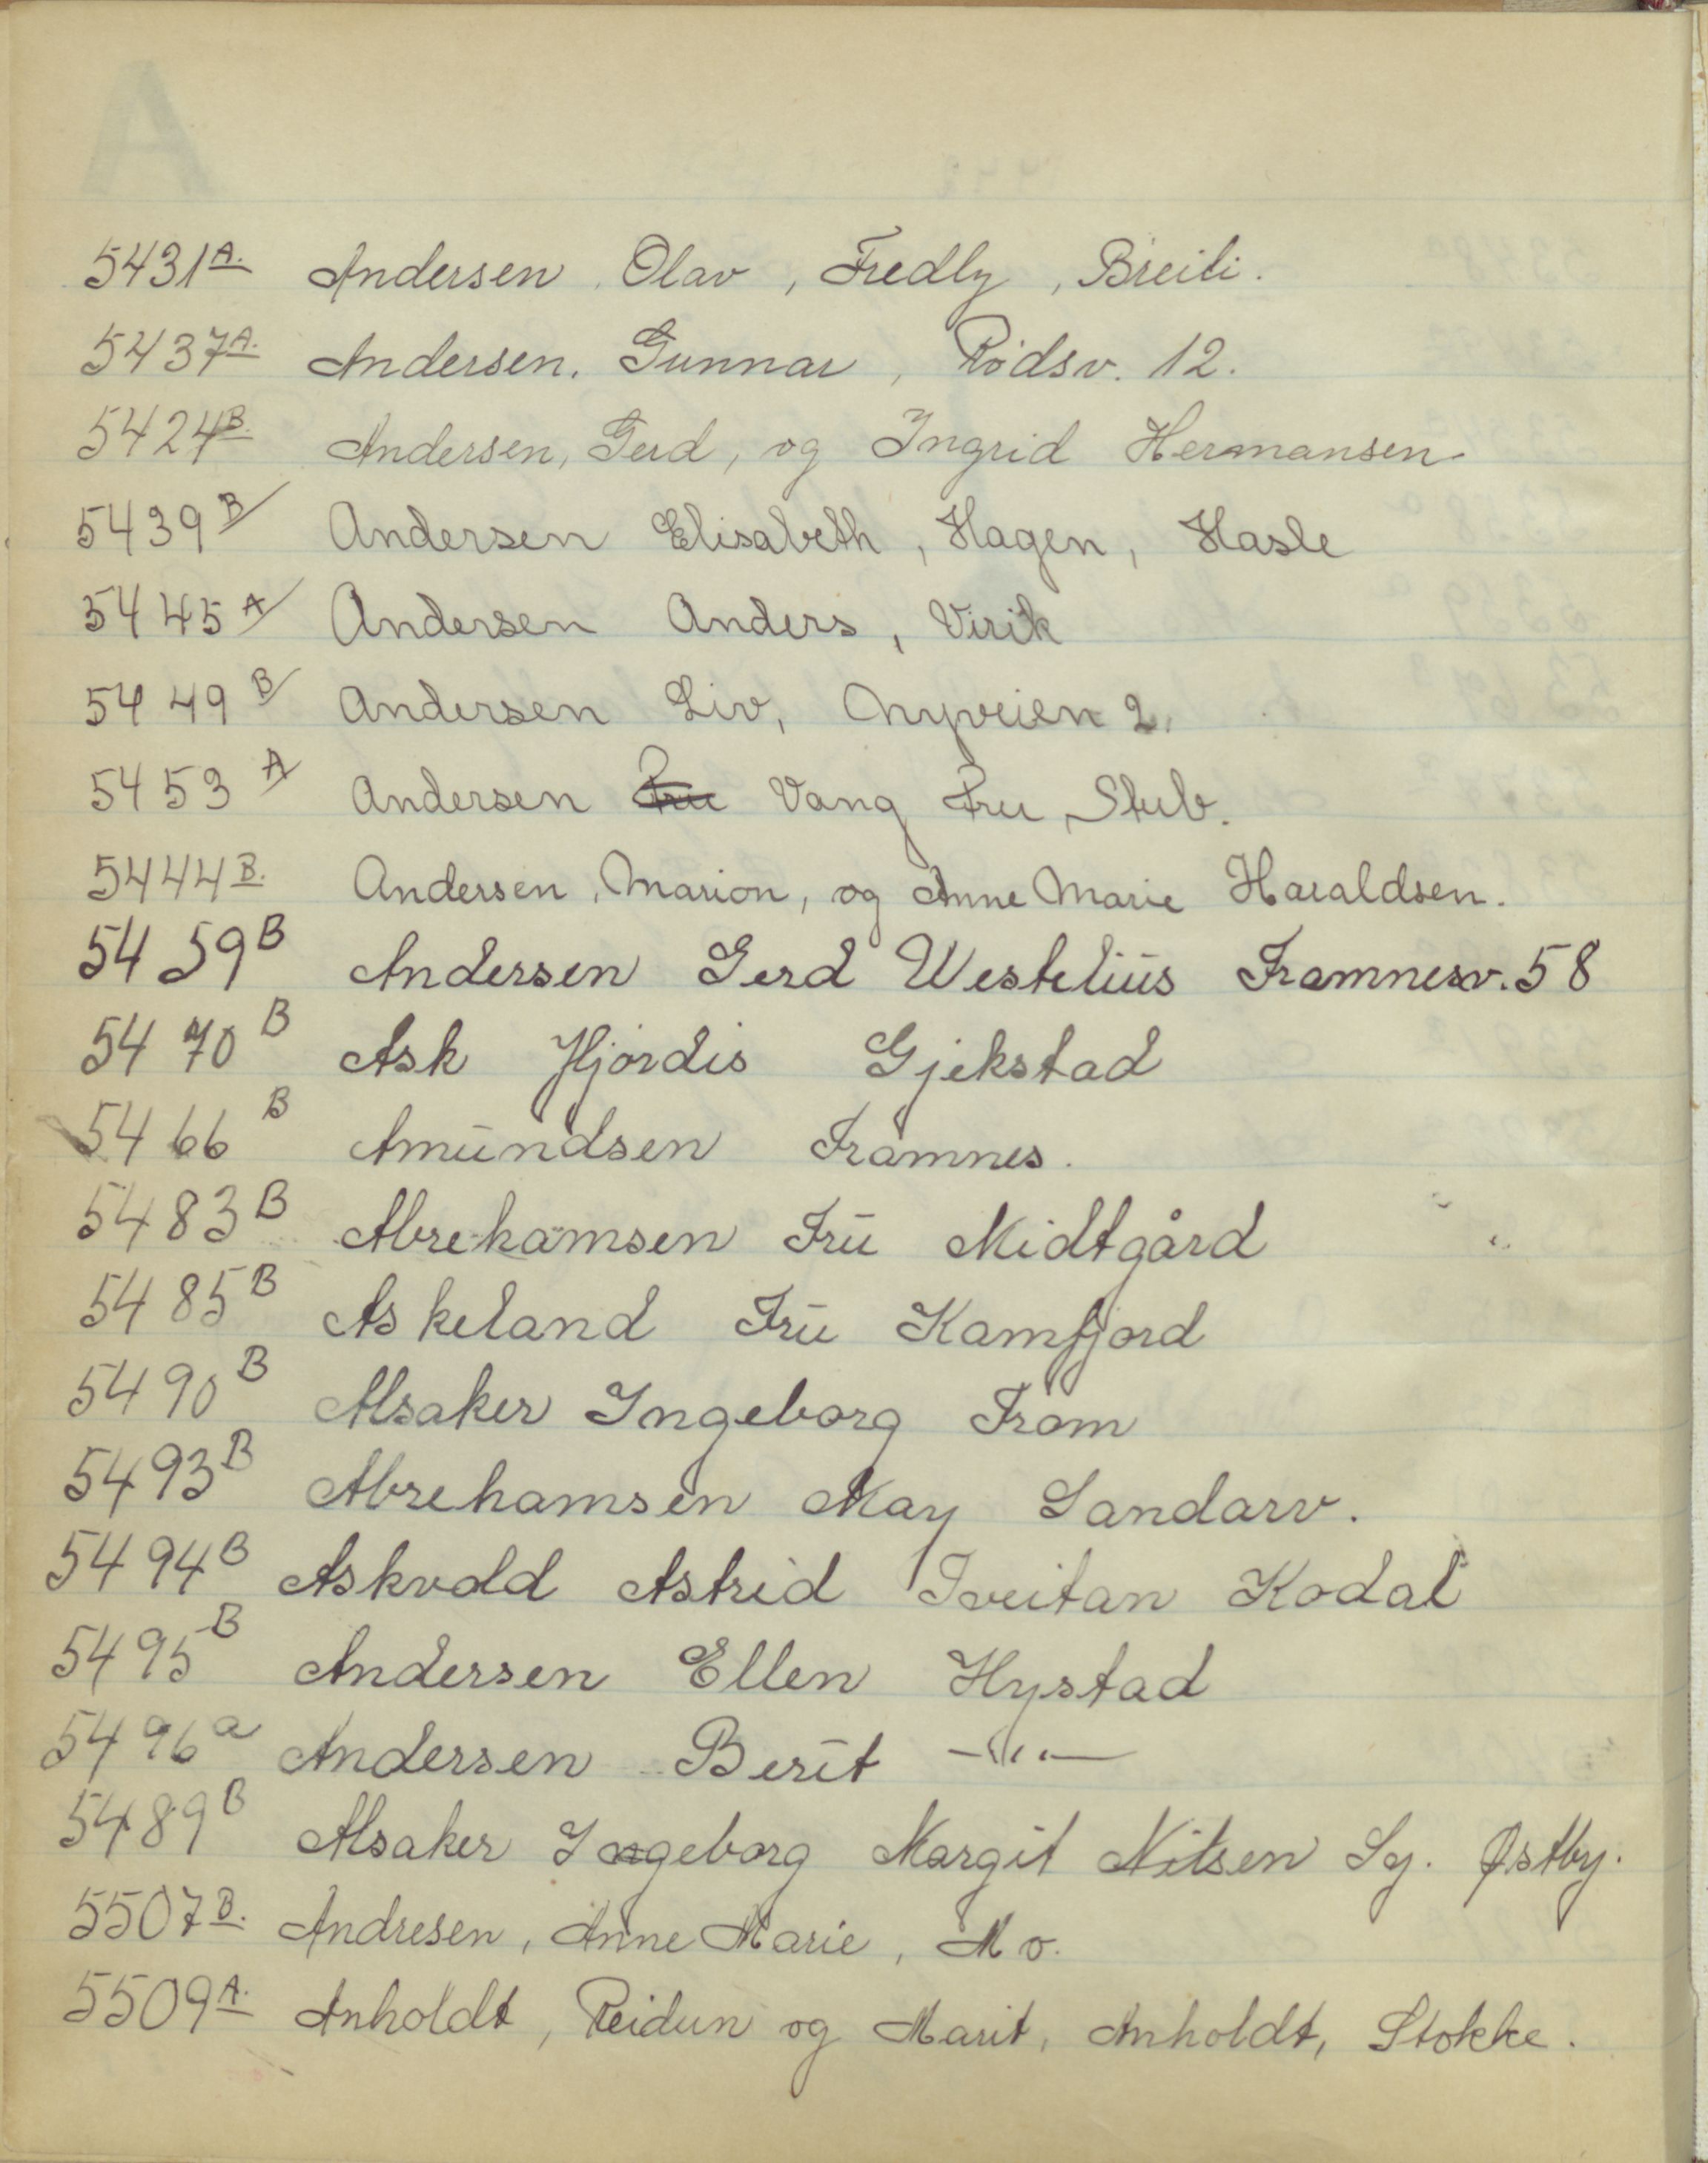 A
5431 A. Andersen, Olav, Fredly, Breili.
5437 A. Andersen, Gunnar, Rødsv. 12.
5424 B. Andersen, Gerd, og Ingrid Hermansen.
5439 B/ Andersen Elisabeth, Hagen, Hasle
5445 A/ Andersen Anders, Virik
5449 B/ Andersen Liv, Nyveien 2.
5453 A/ Andersen Fru Vang Fru, Stub.
5444 B. Andersen, Marion, og Anne Marie Haraldsen.
5459 B Andersen Gerd Westeliūs Framnesv. 58
5470 B Ask Hjørdis Gjekstad
5466 B Amūndsen Framnes.
5483 B Abrehamsen Frū Midtgård
5485 B Askeland Frū Kamfjord
5490 B Alsaker Ingeborg Fram
5493 B Abrehamsen May Sandarv.
5494 B Askvold Astrid Tveitan Kodal
5495 B Andersen Ellen Hystad
5496 a Andersen Berit —"—
5489 B Alsaker Ingeborg Margit Nilsen Sg. Østby.
5507 B. Andresen, Anne Marie, Mo.
5509 A. Anholdt, Reidun og Marit, Anholdt, Stokke.